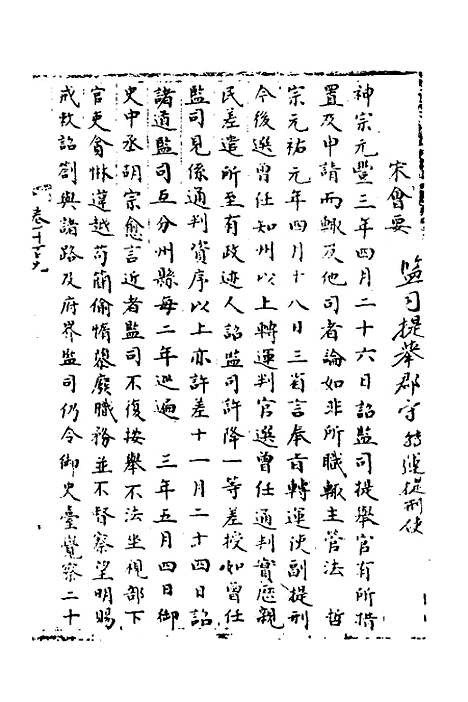 宋會要 監司提舉郡守 提刑使
神宗元豐三年四月二十六日詔監司提舉官有所措
置及申請而輒及他司者論如非所職輒主管法 哲
宗元祐元年四月十八日三省言奉旨轉運使副提刑
今後選曾任知州以上轉運判官選曾任通判實歷親
民差遣所至有政迹人詔監司許降一等差授如曾任
監司見係通判資序以上亦許差十一月二十四日詔
諸道監司互分州縣每二年巡遍 三年五月四日御
史中丞胡宗愈言近者監司不復按舉不法坐視部下
官吏貪惏違越苟簡偷惰隳廢職務並不督察望明賜
戒敕詔劄與諸路及府界監司仍令御史臺覺察二十